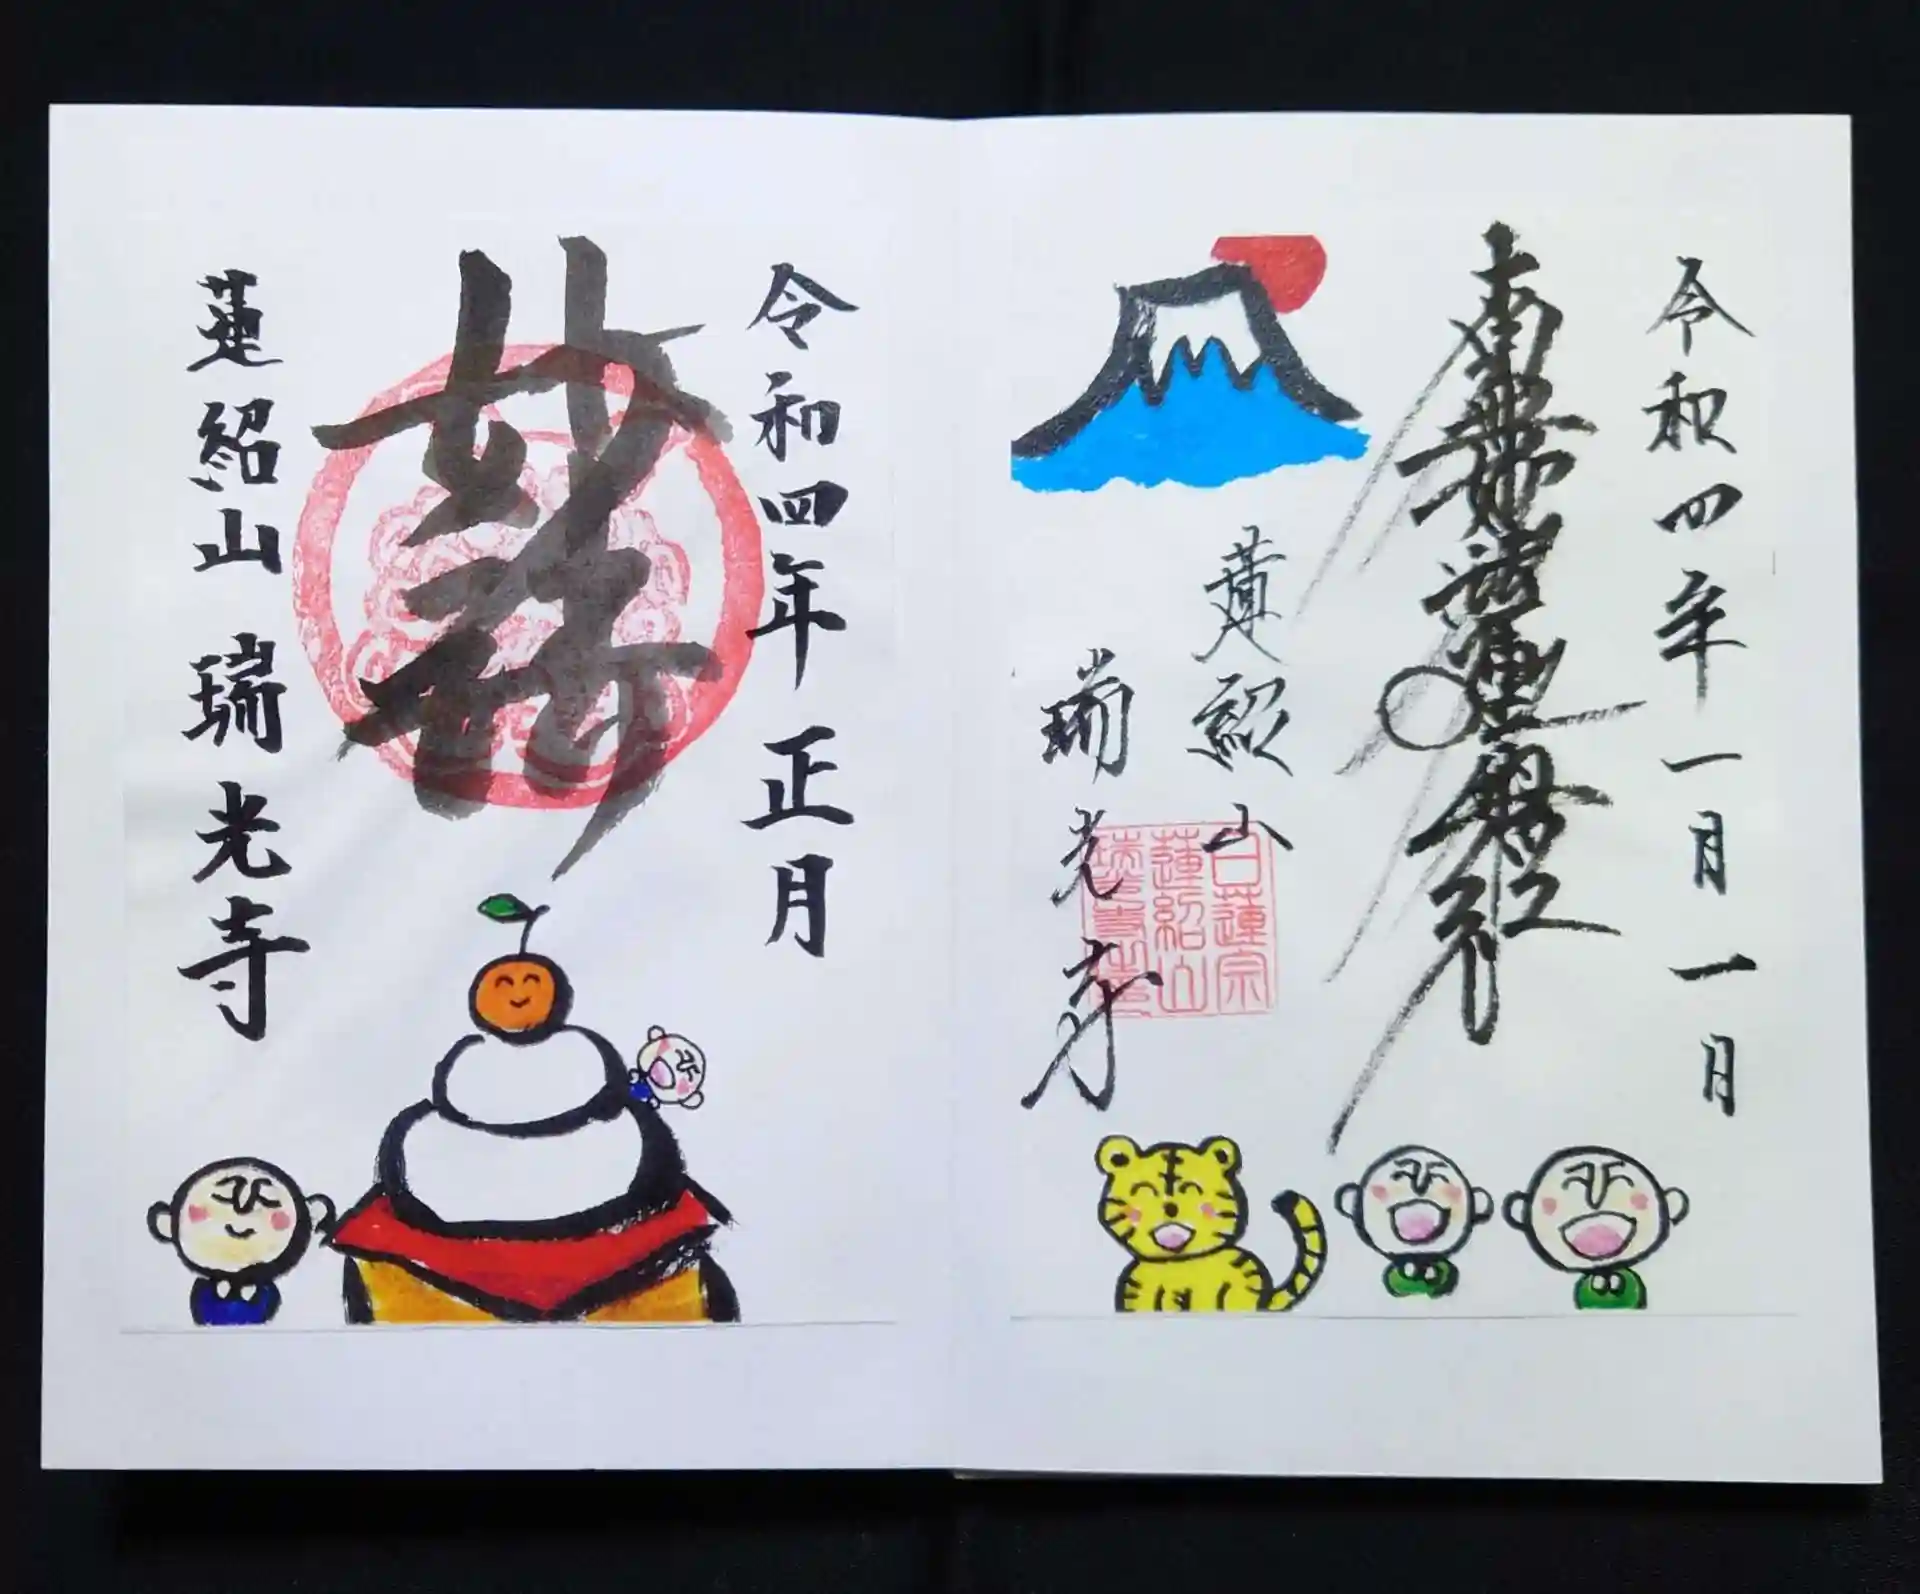 令和四年一月一日
南無妙法蓮華経
蓮紹山
瑞光寺
日蓮宗
蓮紹山
令和四年 正月
妙
蓮紹山 瑞光寺